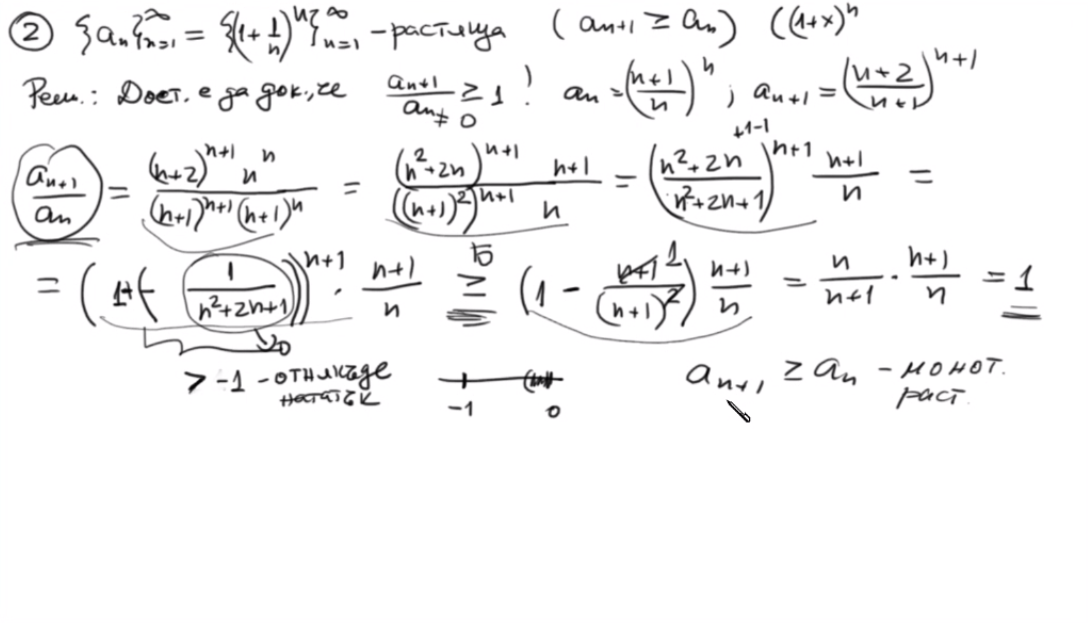 ② {aₙ}ₙ₌₁^∞ = {(1 + 1/n)ⁿ}ₙ₌₁^∞ – растяща (aₙ₊₁ ≥ aₙ) ((1+x)ⁿ
Реш.: Дост. е да док., че aₙ₊₁/aₙ ≥ 1 ! aₙ = ((n+1)/n)ⁿ ; aₙ₊₁ = ((n+2)/(n+1))ⁿ⁺¹
≠ 0
aₙ₊₁/aₙ = (n+2)ⁿ⁺¹ nⁿ / (n+1)ⁿ⁺¹ (n+1)ⁿ = (n²+2n)ⁿ⁺¹ n+1 / ((n+1)²)ⁿ⁺¹ n = ((n²+2n +1-1)/(n²+2n+1))ⁿ⁺¹ (n+1)/n =
= (1+(- 1/(n²+2n+1)))ⁿ⁺¹ · (n+1)/n ≥ (1 - (n+1) 1/(n+1)²) (n+1)/n = n/(n+1) · (n+1)/n = 1
Б
→0
> -1 – отнякъде нататък
-1 0
aₙ₊₁ ≥ aₙ – монот. раст.